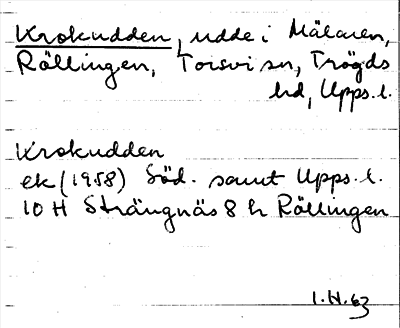 Krokudden, udde i Mälaren,
Rällingen, Torsvi sn, Trögds
hd, Upps.l.
Krokudden
ek (1958) Söd. samt Upps.l.
10 H Strängnäs 8 h Rällingen
I.H. 63